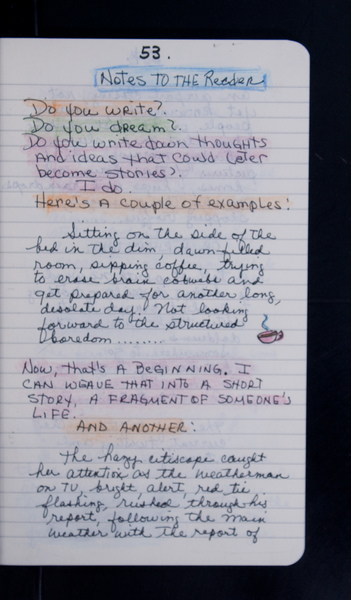 53.
Notes To The Reader
Do you write?
Do you dream?
Do you write down thoughts
And ideas that could later
become stories?
I do.
Here's a couple of examples:
Sitting on the side of the
bed in the dim, dawn filled
room, sipping coffee, trying
to erase brain cobwebs and
get prepared for another long,
desolate day. Not looking
forward to the structured
boredom.........
Now, that's a beginning. I
can weave that into a short
story, a fragment of someone's
life.
And another:
The hazy citiscape caught
her attention as the weatherman
on TV, bright, alert, red tie
flashing, rushed through his
report, following the main
weather with the report of